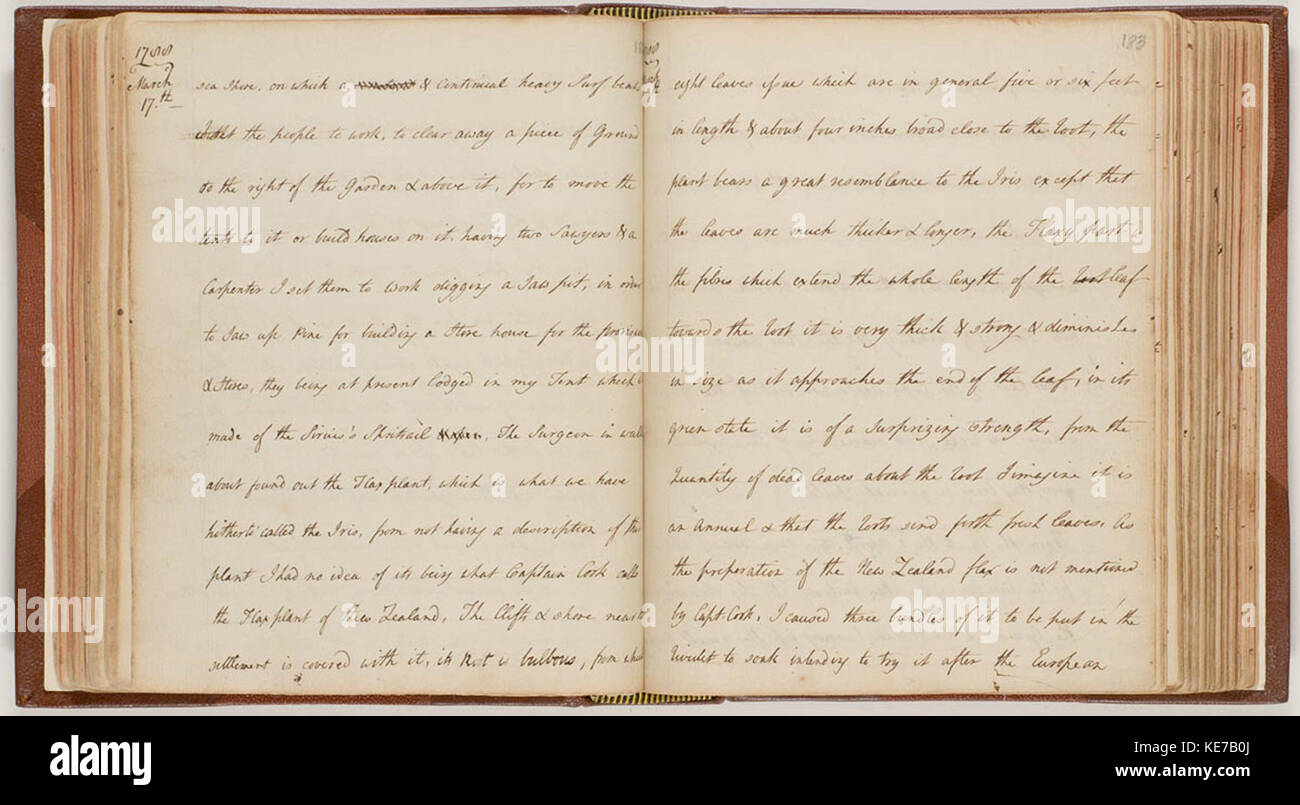 1788
March
17.th
sea shore, on which a & Continual heavy Surf beats
I set the people to work, to clear away a piece of Ground
to the right of the Garden & above it, for to move the
tents to it or build houses on it, having two Sawyers & a
Carpenter I set them to work digging a Saw pit, in order
to Saw up Pine for building a Store house for the
& Stores, they being at present lodged in my Tent which
made of the Sirius's Spritsail The Surgeon in
about found out the Flax plant, which is what we have
hitherto called the Iris, from not having a description of this
plant I had no idea of its being what Captain Cook calls
the Flax plant of New Zealand, The Cliffs & shore near
settlement is covered with it, its Root is bulbous, from
183
eight leaves issue which are in general five or six feet
in length & about four inches broad close to the Root, the
plant bears a great resemblance to the Iris except that
the leaves are much thicker & longer, the Flaxy part
the fibres which extend the whole length of the leaf
towards the Root it is very thick & strong & diminishes
in size as it approaches the end of the leaf, in its
green state it is of a Surprizing strength, from the
Quantity of dead leaves about the Root I imagine it is
an Annual & that the Roots send forth fresh leaves. As
the preperation of the New Zealand flax is not mentioned
by Capt. Cook, I caused three bundles of it to be put in the
Rivulet to soak intending to try it after the European
alamy
alamy
alamy stock photo
KE7B0J
www.alamy.com